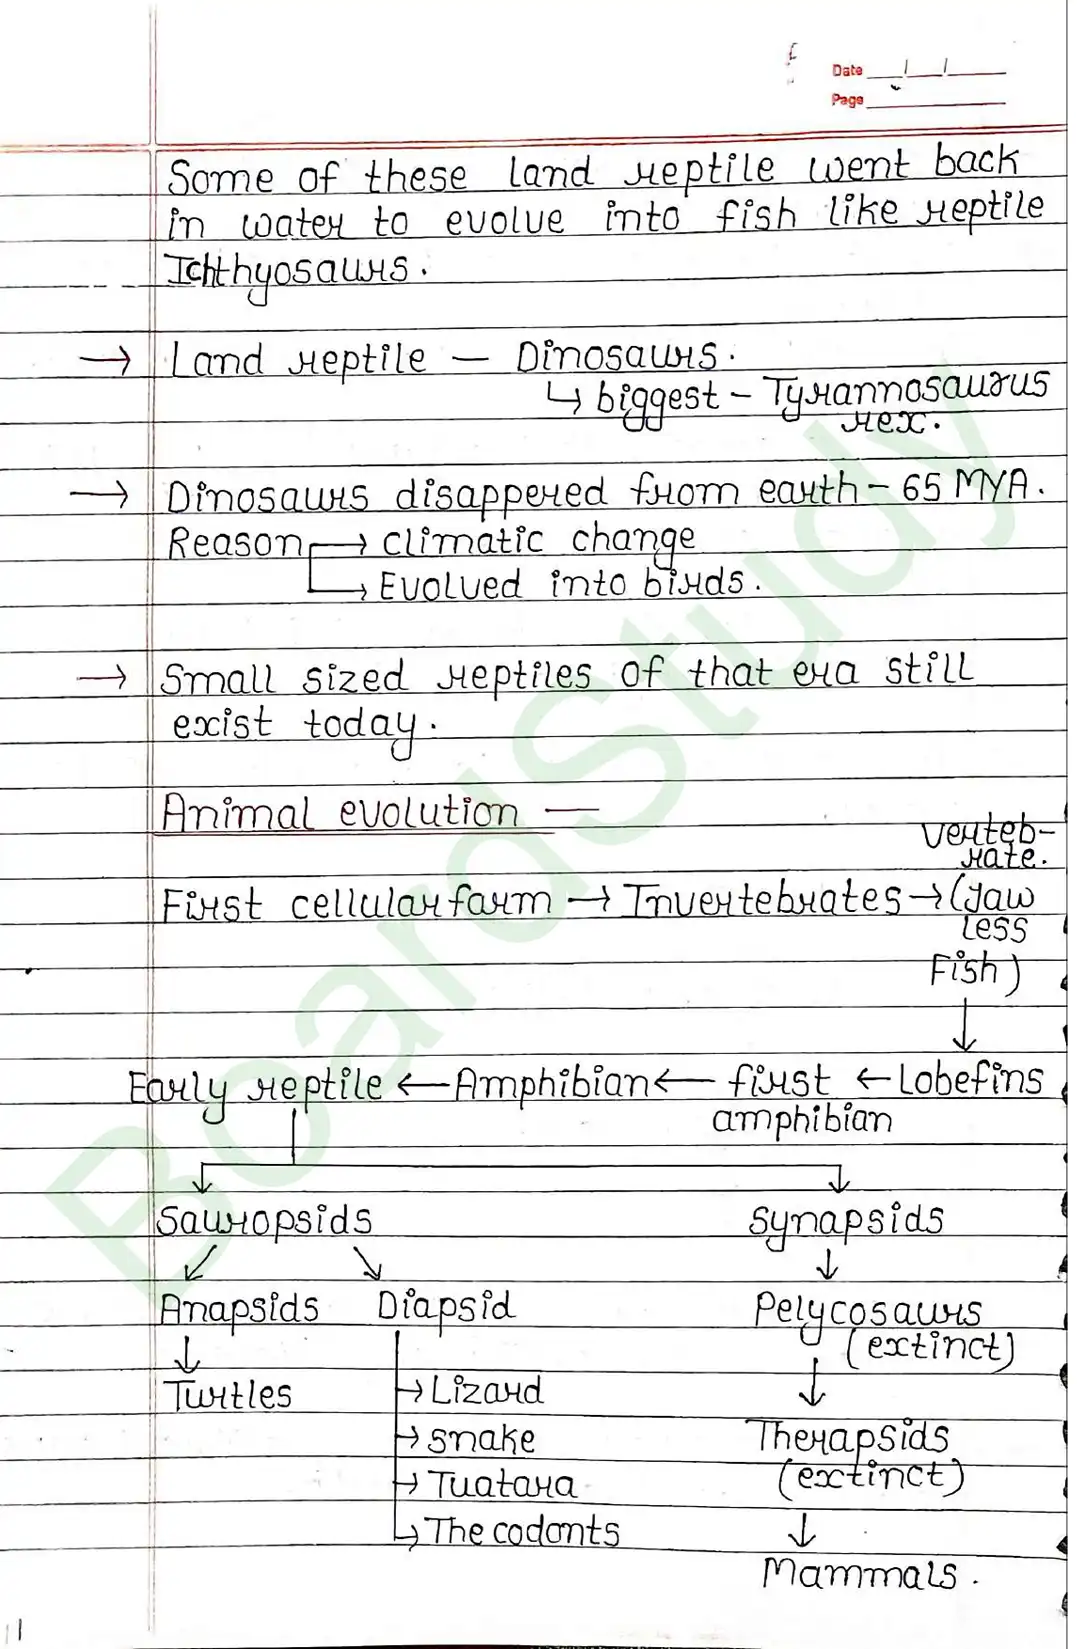 Date
Page
Some of these land reptile went back
in water to evolve into fish like reptile
Ichthyosaurs.
→ Land reptile — Dinosaurs.
↳ biggest - Tyrannosaurus
rex.
→ Dinosaurs disappered from earth - 65 MYA.
Reason → climatic change
→ Evolved into birds.
→ Small sized reptiles of that era still
exist today.
Animal evolution —
verteb-
rate.
First cellular farm → Invertebrates → (Jaw
less
Fish)
↓
Early reptile ← Amphibian ← first ← Lobefins
amphibian
Sauropsids Synapsids
Anapsids Diapsid Pelycosaurs
(extinct)
Turtles → Lizard
→ snake Therapsids
(extinct)
→ Tuatara
→ The codonts
Mammals.
BoardStudy